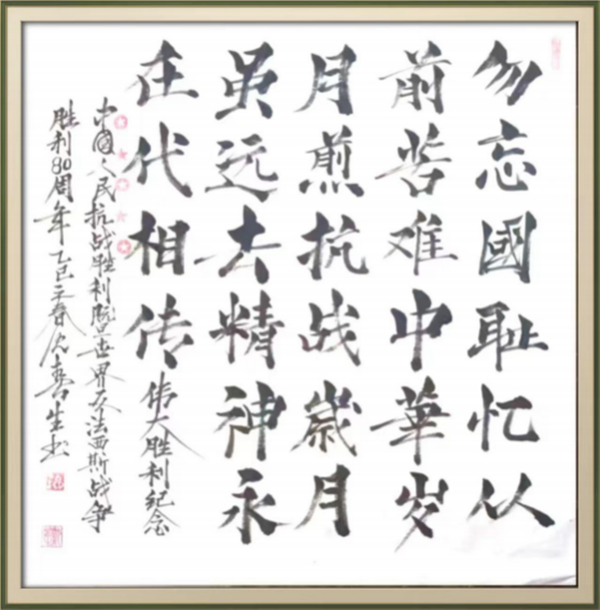 勿忘國耻忆从
前苦难中華岁
月煎抗战歲月
虽远去精神永
在代相传 伟大胜利纪念
中國人民抗战胜利暨世界反法西斯战争
胜利80周年 乙巳 春 生书